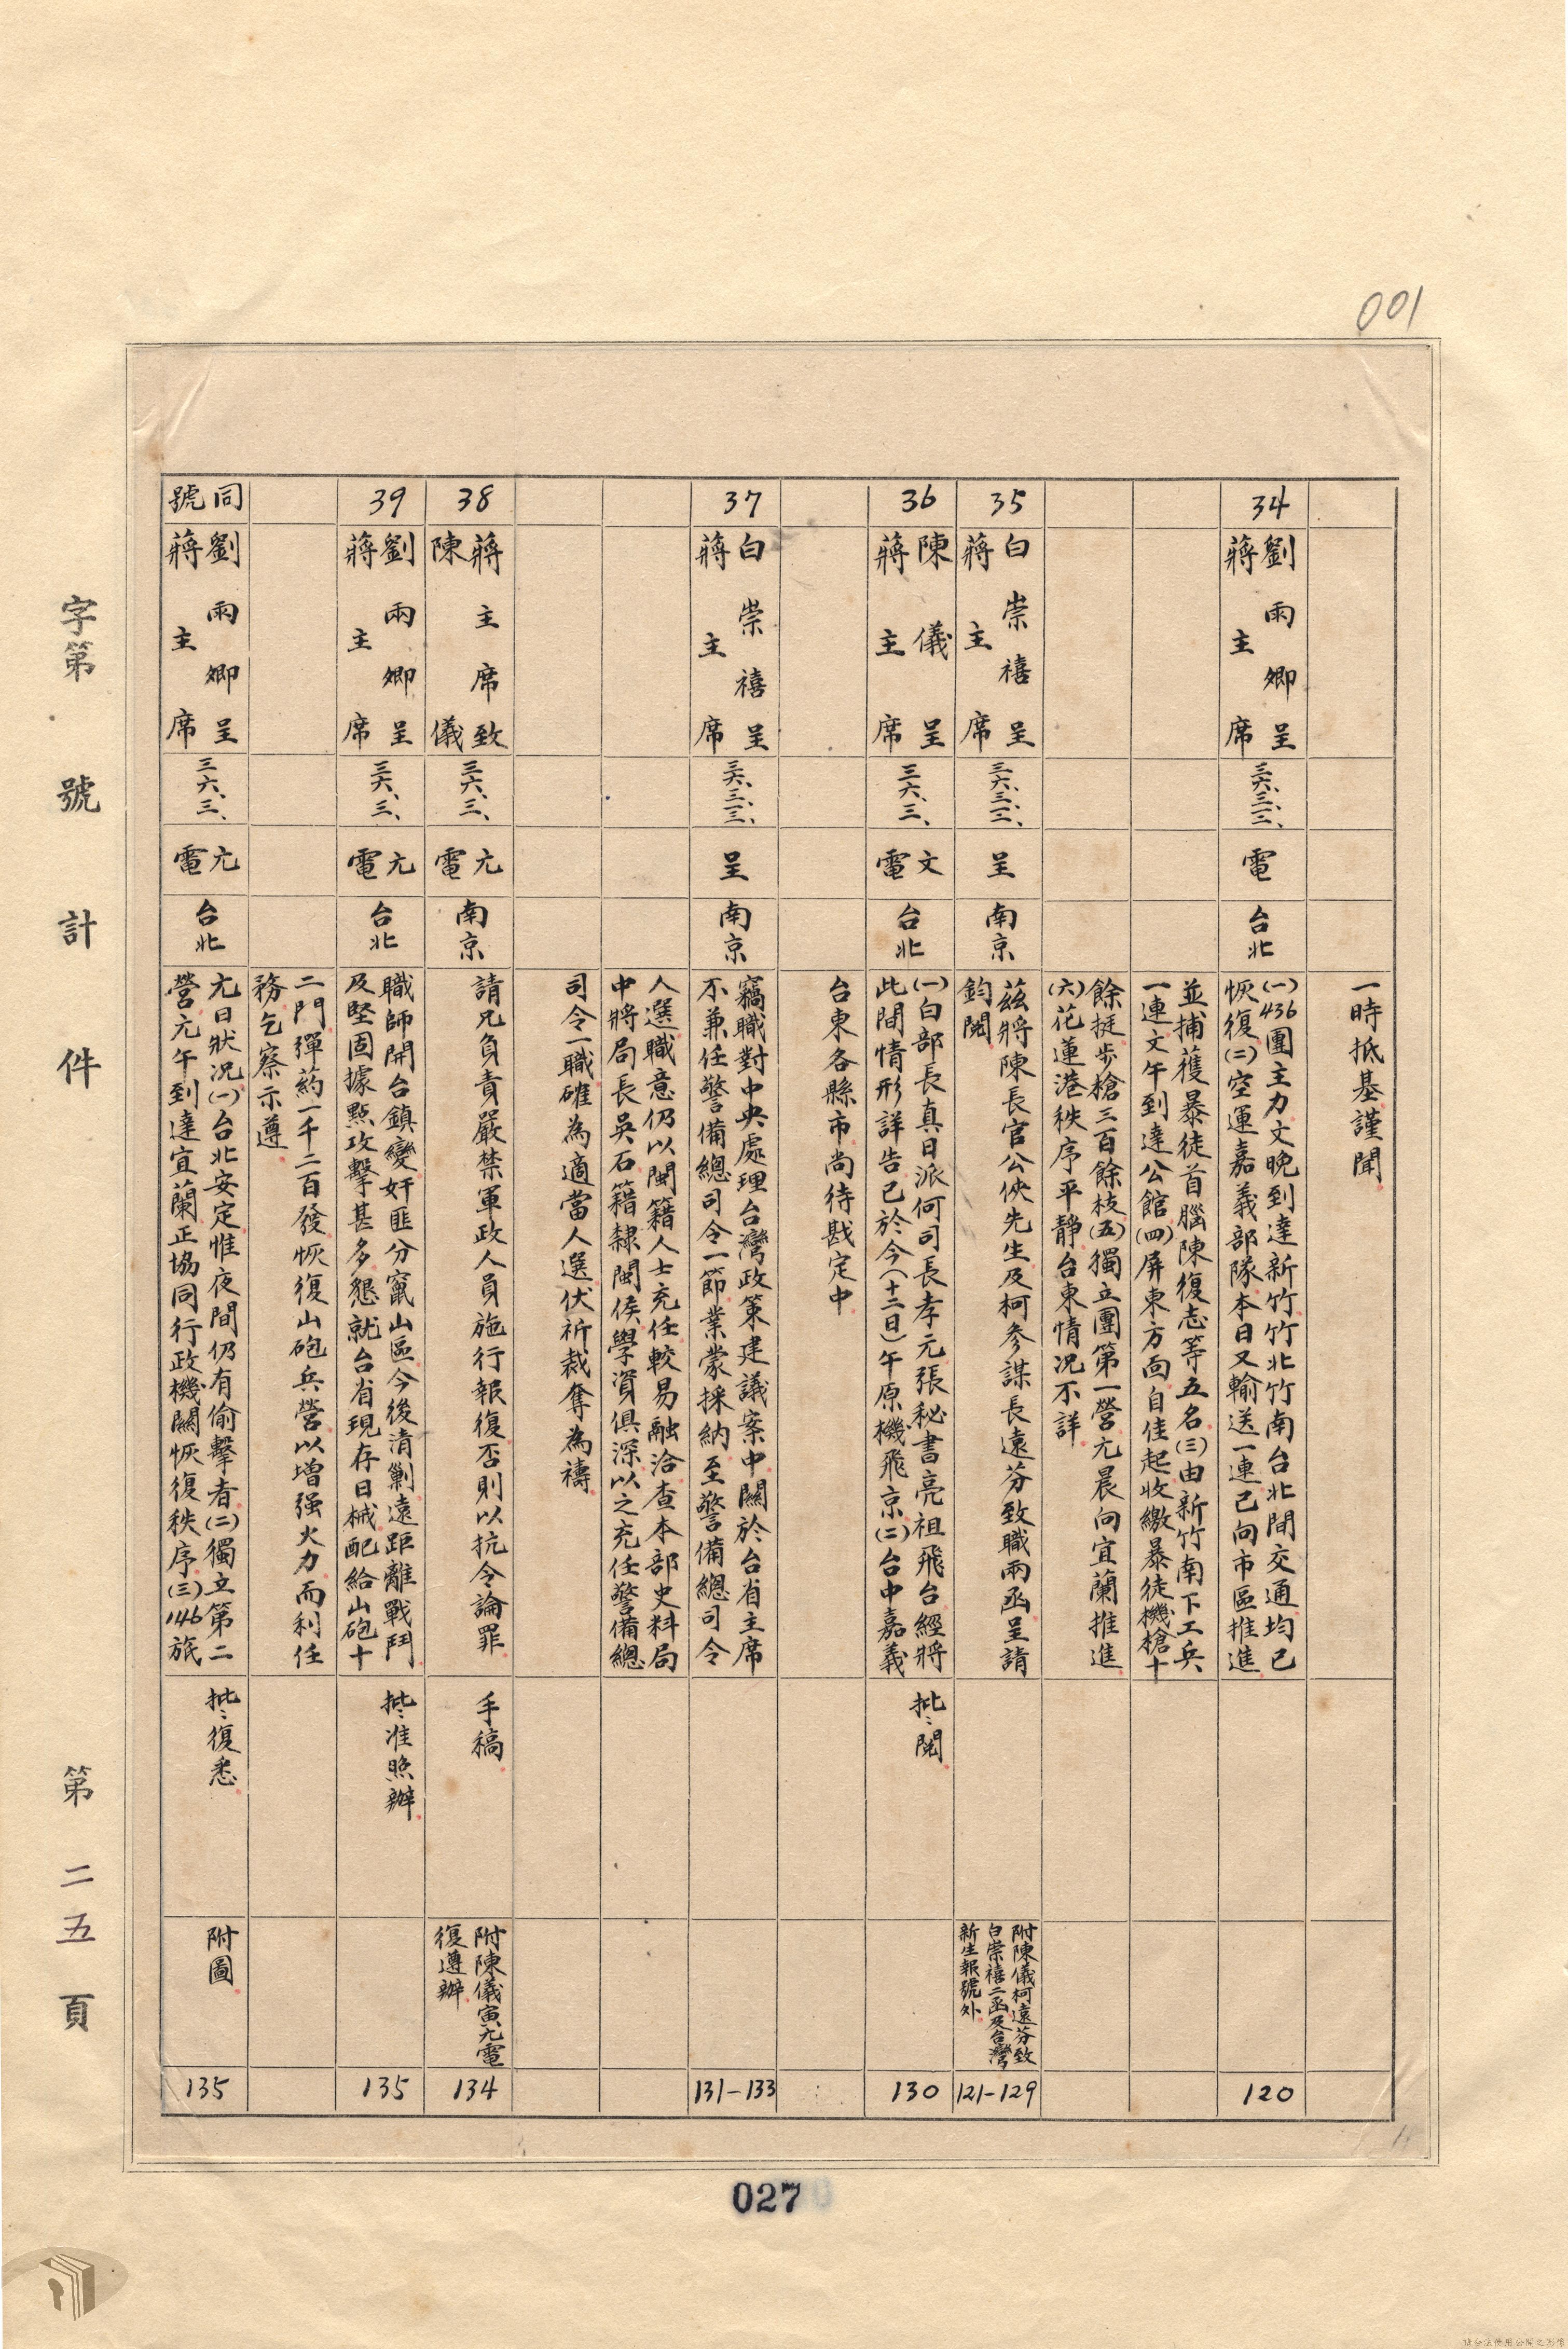 001
一時抵基謹聞
34
劉雨卿呈
蔣主席
三六、三、一二、
電
台北
(一)436團主力文晚到達新竹竹北竹南台北間交通均已
恢復(二)空運嘉義部隊本日又輸送一連已向市區推進
並捕獲暴徒首腦陳復志等五名(三)由新竹南下工兵
一連文午到達公館(四)屏東方面自佳起收繳暴徒機槍十
餘挺步槍三百餘枝(五)獨立團第一營元晨向宜蘭推進
(六)花蓮港秩序平靜台東情況不詳
120
35
白崇禧呈
蔣主席
三六、三、一二、
呈
南京
茲將陳長官公俠先生及柯參謀長遠芬致職兩函呈請
鈞閱
附陳儀柯遠芬致
白崇禧二函及台灣
新生報號外
121-129
36
陳儀呈
蔣主席
三六、三、
文電
台北
(一)白部長真日派何司長孝元張秘書亮祖飛台經將
此間情形詳告已於今(十二日)午原機飛京(二)台中嘉義
台東各縣市尚待戡定中
批、閱
130
37
白崇禧呈
蔣主席
三六、三、一三、
呈
南京
竊職對中央處理台灣政策建議案中關於台省主席
不兼任警備總司令一節業蒙採納至警備總司令
人選職意仍以閩籍人士充任較易融洽查本部史料局
中將局長吳石籍隸閩侯學資俱深以之充任警備總
司令一職確為適當人選伏祈裁奪為禱
131-133
38
蔣主席致
陳儀
三六、三、
元電
南京
請兄負責嚴禁軍政人員施行報復否則以抗令論罪
手稿
附陳儀寅元電
復遵辦
134
39
劉雨卿呈
蔣主席
三六、三、
元電
台北
職師開台鎮變奸匪分竄山區今後清剿遠距離戰鬥
及堅固據點攻擊甚多懇就台省現存日械配給山砲十
二門彈葯一千二百發恢復山砲兵營以增强火力而利任
務乞察示遵
批、准照辦
135
同號
劉雨卿呈
蔣主席
三六、三、
元電
台北
元日狀況(一)台北安定惟夜間仍有偷擊者(二)獨立第二
營元午到達宜蘭正協同行政機關恢復秩序(三)146旅
批、復悉
附圖
135
字第 號計 件 第二五頁
027
請合法使用公開之影像